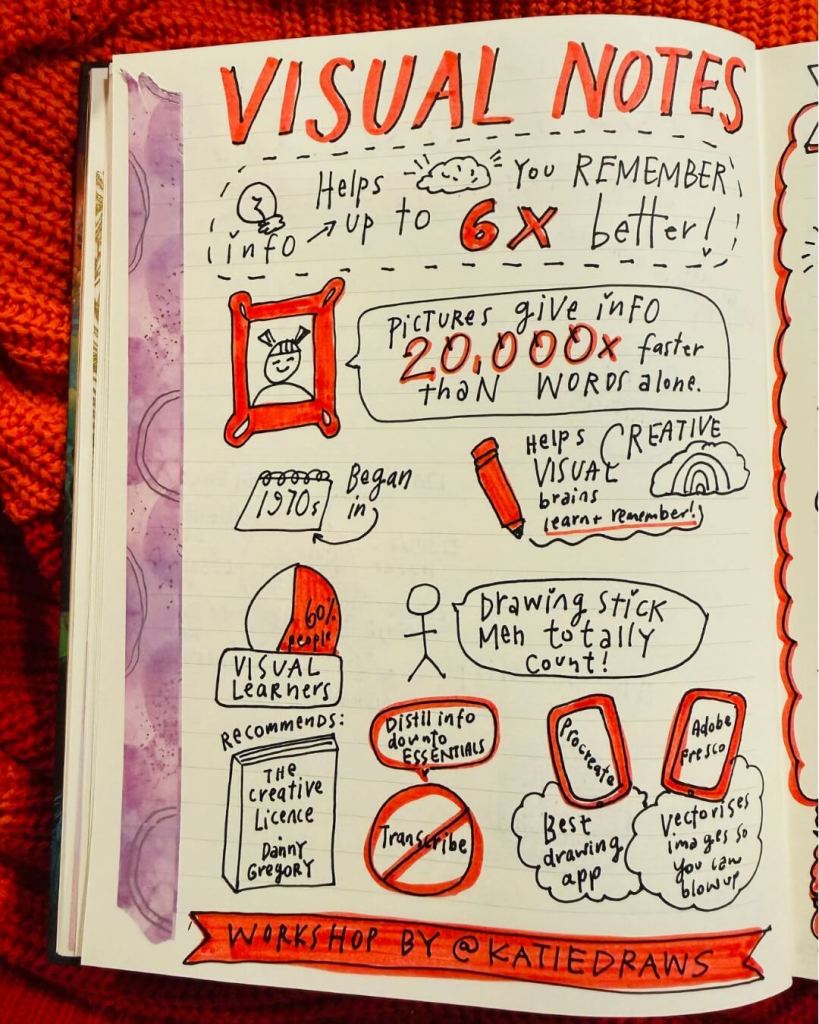 VISUAL NOTES
Helps You REMEMBER
info up to 6X better!
PICTURES give info
20,000x faster
than WORDS alone.
1970s
Began
in
Helps CREATIVE
VISUAL
brains
learn + remember!
60%
people
VISUAL
Learners
Drawing STICK
Men totally
Count!
Recommends:
THE
Creative
Licence
Danny
GREGORY
Distil info
down to
ESSENTIALS
Transcribe
Procreate
Best
drawing
app
Adobe
Fresco
Vectorises
images so
you can
blow up
WORKSHOP BY @KATIEDRAWS